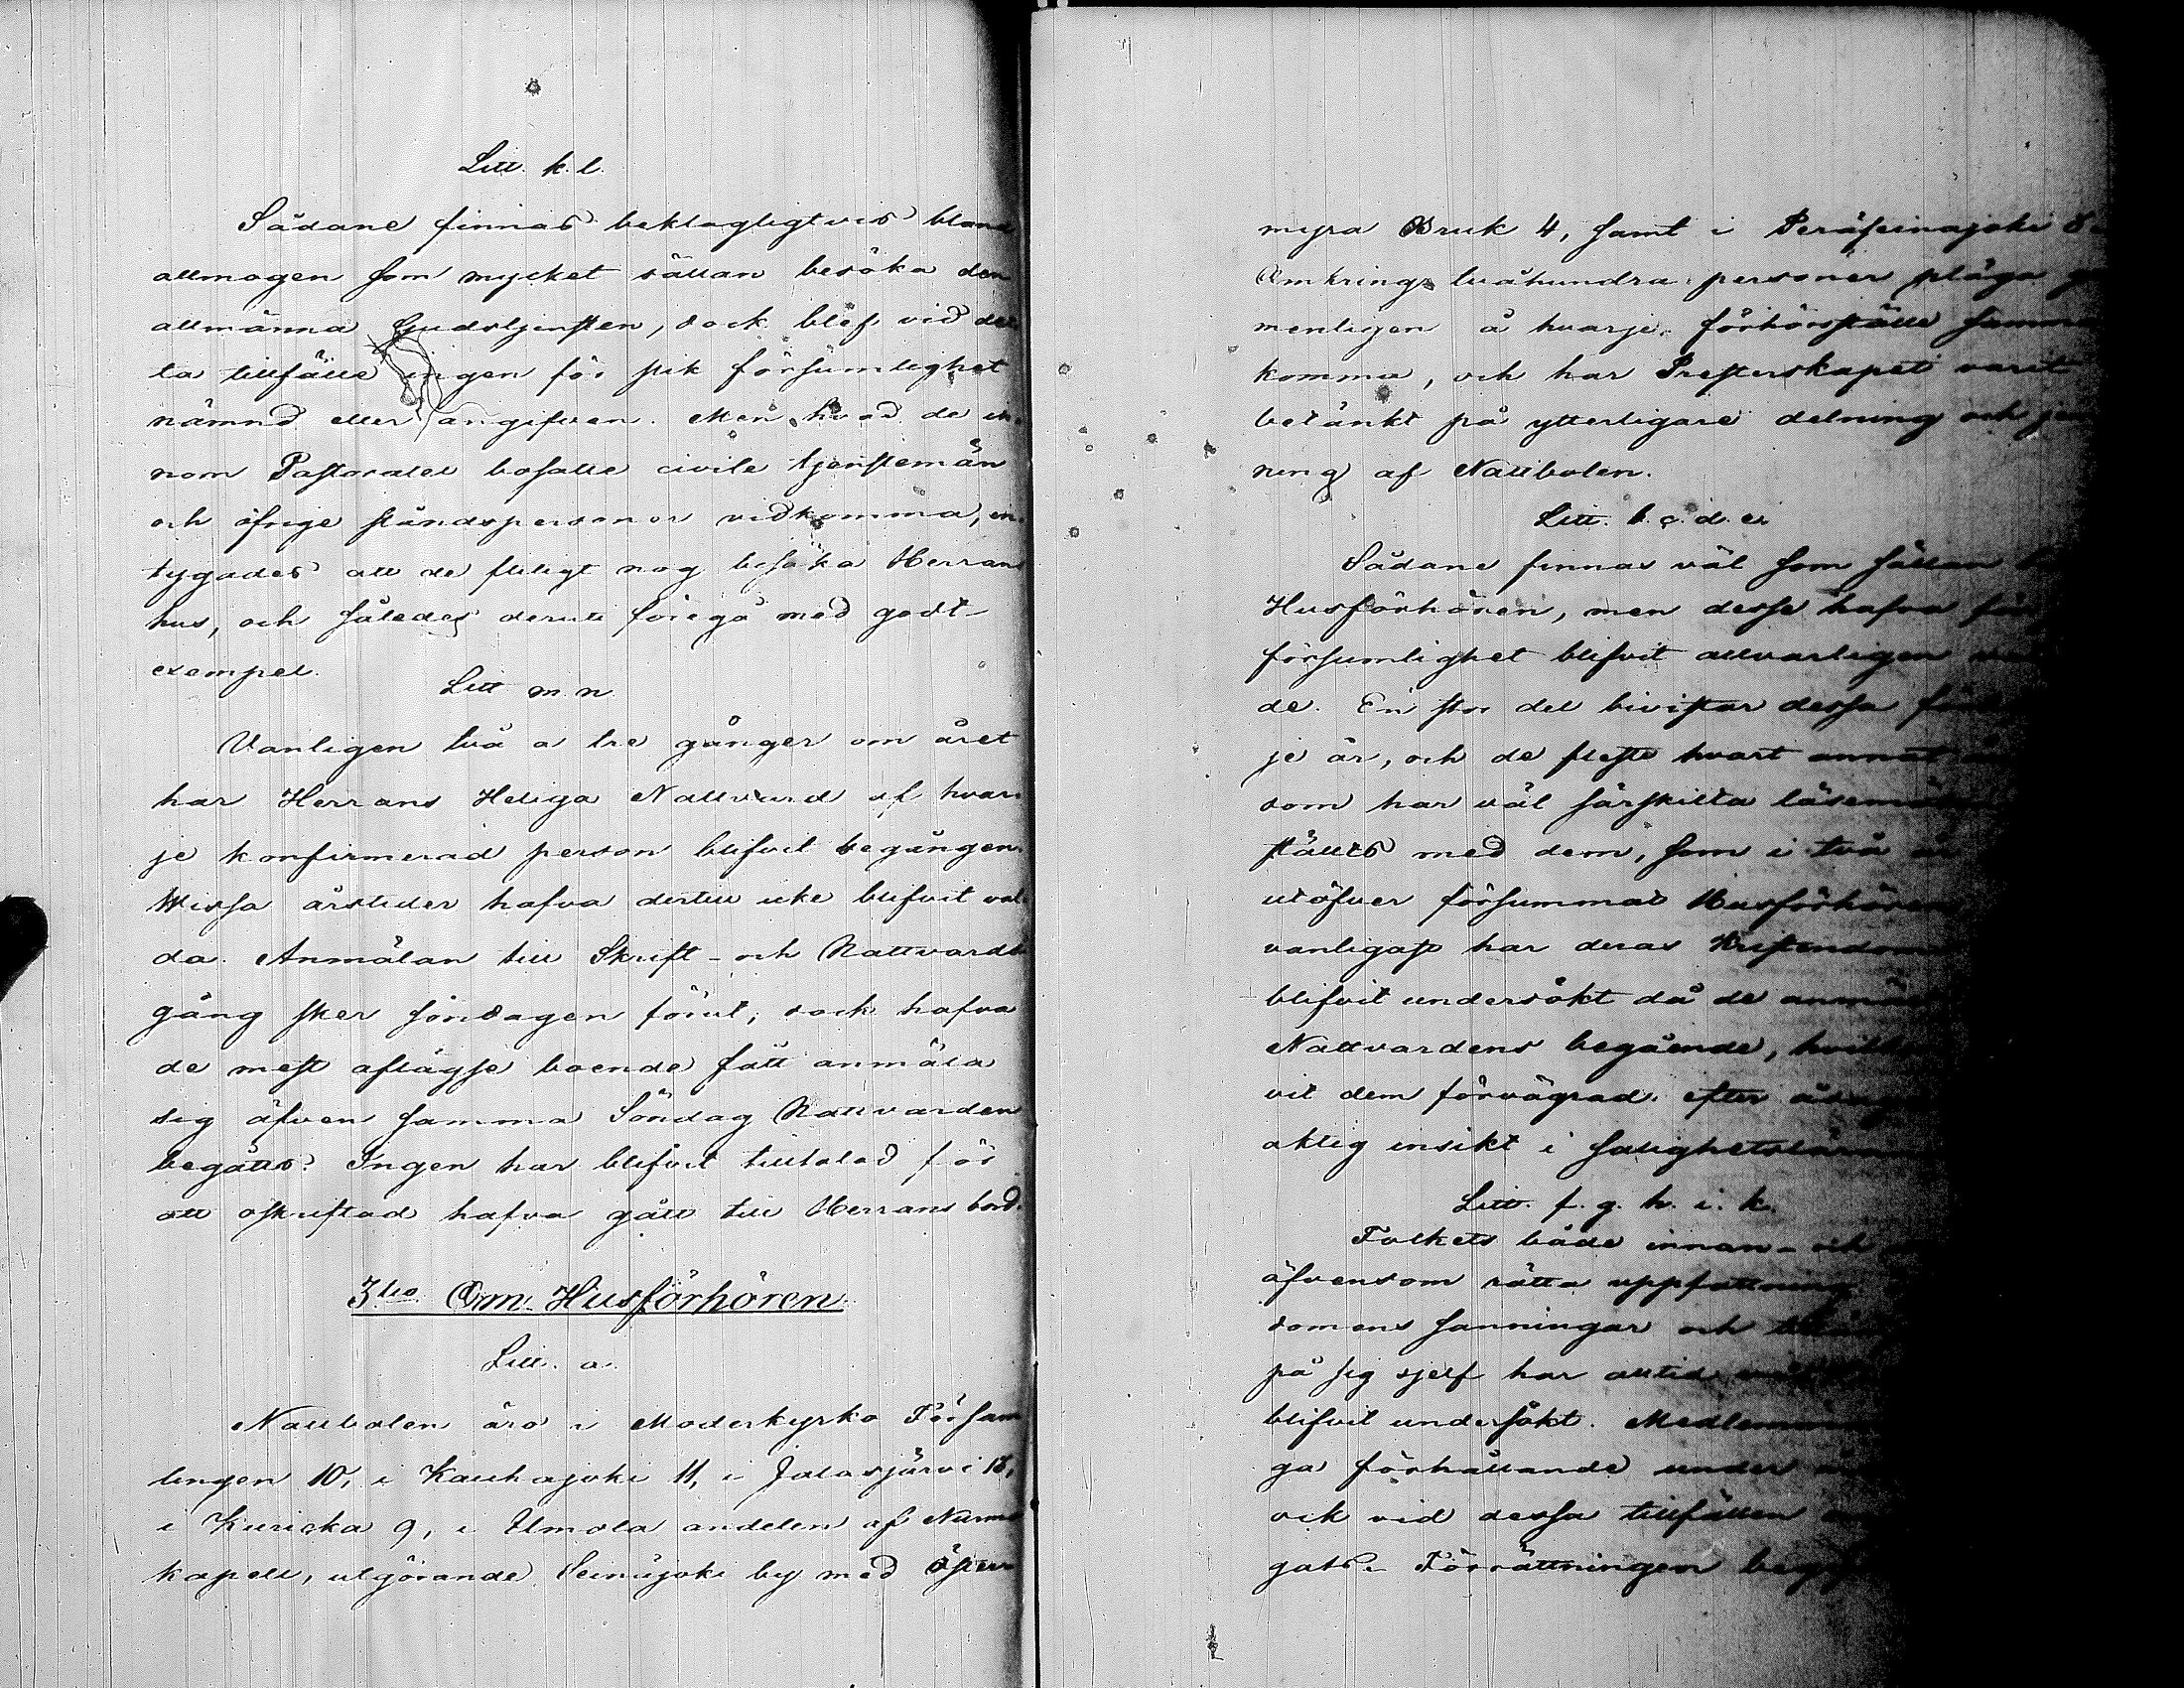 Litt. k. l.
Sådane finnas beklagligtvis bland
allmogen som mycket sällan besöka den
allmänna Gudstjensten, dock blef vid det
ta tillfälle ingen för slik försumlighet
nämnd eller angifven. Men hvad de in-
nom Pastoratet bosatte civile tjenstemän
och öfrige ståndspersoner vidkomma, in-
tygades att de flitigt nog besöka Herrans
hus, och således deruti föregå med godt
exempel.
Litt m. n.
Vanligen två a tre gånger om året
har Herrans Heliga Nattvard af hvar-
je konfirmerad person blifvit begången.
Wissa årstider hafva dertill icke blifvit val-
da. Anmälan till Skrift- och Nattvards-
gång sker söndagen förut; dock hafva
de mest aflägse boende fått anmäla
sig äfven samma Söndag Nattvarden
begåtts. Ingen har blifvit tilltalad för
att oskriftad hafva gått till Herrans bord.
3tio Om Husförhören
Litt. a.
Nattbolen äro i Moderkyrko Försam
lingen 10, i Kauhajoki 11, i Jalasjärvi 18,
i Kuricka 9, i Ilmola andelen af Nurmo
kapell, utgörande Seinäjoki by med Öster
myra Bruk 4, samt i Peräseinajoki 8
Omkring tvåhundra personer pläga ge
menligen å hvarje förhörsställe samman
komma, och har Presterskapet varit
betänkt på ytterligare delning och jem
ning af Nattbolen.
Litt. b. c. d. e.
Sådane finnas väl som sällan
Husförhören, men desse hafva för
försumlighet blifvit allvarligen
de. En stor del bivistar dessa för
je år, och de fleste hvart annat
som har väl särskilta läsemö
ställts med dem, som i två år
utöfver försummat Husförhören
vanligast har deras Kristendom
blifvit undersökt då de anmäl
Nattvardens begående, hvilke
vit dem förvägrad efter
aktig insikt i salighetslära
Litt. f. g. h. i. k.
Folkets både innan- och
äfvensom rätta uppfattning
domens sanningar och
på sig sjelf har alltid
blifvit undersökt. Medlemmar
ga förhållande under
ock vid dessa tillfällen
gats. Förrättningen beg